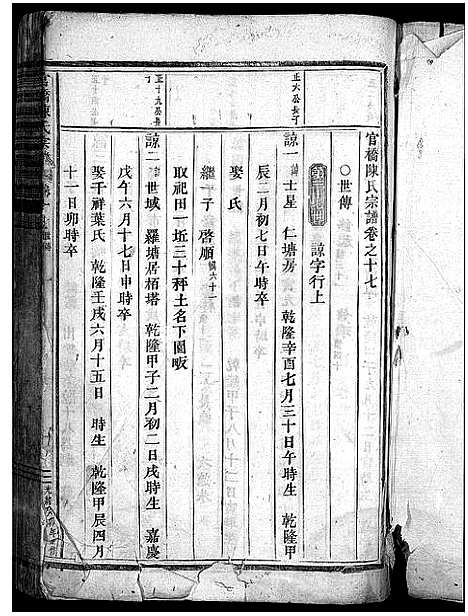 官橋陳氏宗譜卷之十七
〇世傳
諒字行上
正六公長丁
諒一 士星 仁塘房 乾隆辛酉七月三十日午時生 乾隆甲
辰二月初七日午時卒
娶氏
繼一子 啓順 儀六十一
取祀田一坵三十秤土名下園畈
正十九公長
諒二 世域 羅塘居栢塔 乾隆甲子二月初二日戌時生 嘉慶
戊午六月十七日申時卒
娶千祥葉氏 乾隆壬戌六月十五日 時生 乾隆甲辰四月
十一日卯時卒